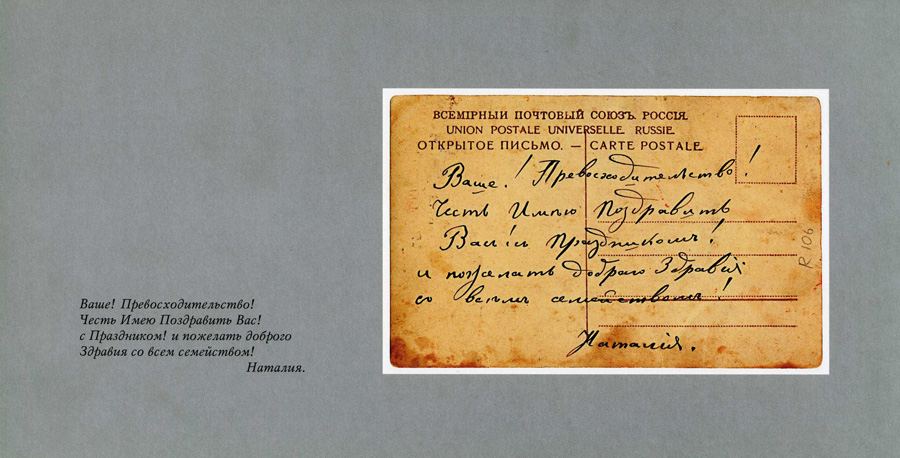 Ваше! Превосходительство!
Честь Имею Поздравить Вас!
с Праздником! и пожелать доброго
Здравия со всем семейством!
Наталия.
ВСЕМІРНЫЙ ПОЧТОВЫЙ СОЮЗЪ. РОССІЯ.
UNION POSTALE UNIVERSELLE. RUSSIE.
ОТКРЫТОЕ ПИСЬМО. — CARTE POSTALE.
Ваше! Превосходительство!
Честь Имѣю Поздравить
Васъ! съ Праздникомъ!
и пожелать добраго Здравія
со всѣмъ семействомъ!
Наталія.
R 106